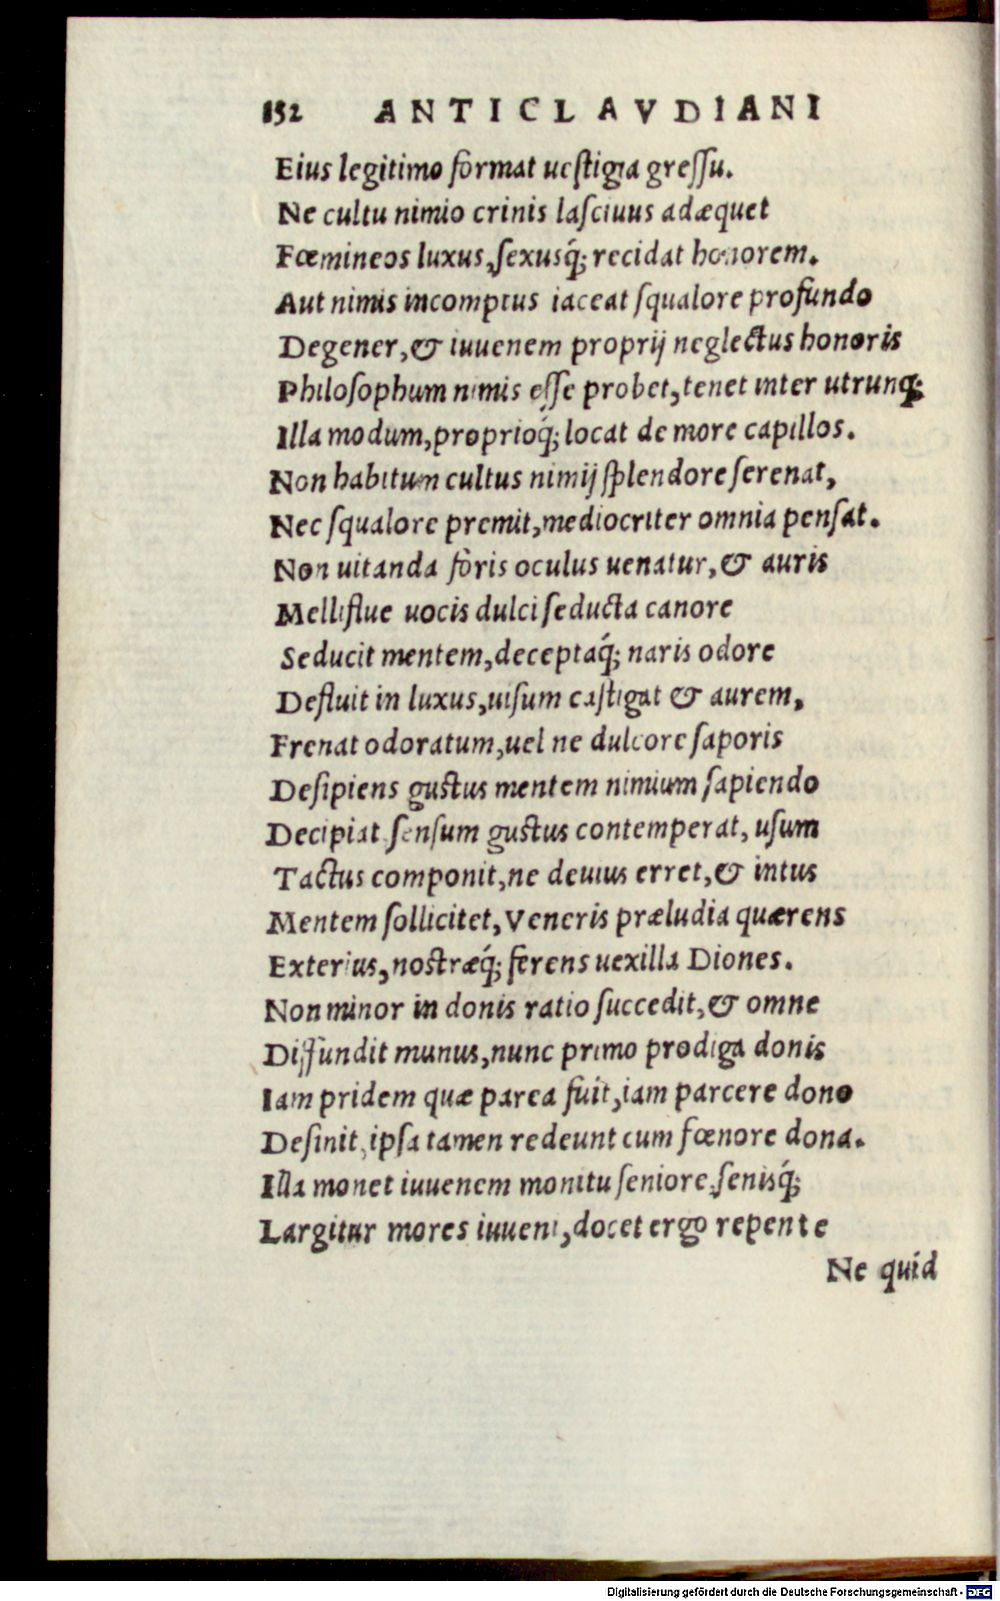 152 ANTICLAVDIANI
Eius legitimo format uestigia gressu.
Ne cultu nimio crinis lasciuus adæquet
Fœmineos luxus, sexusq́; recidat honorem.
Aut nimis incomptus iaceat squalore profundo
Degener, & iuuenem proprij neglectus honoris
Philosophum nimis esse probet, tenet inter utrunq;
Illa modum, proprioq́; locat de more capillos.
Non habitum cultus nimij splendore serenat,
Nec squalore premit, mediocriter omnia pensat.
Non uitanda foris oculus uenatur, & auris
Melliflue uocis dulci seducta canore
Seducit mentem, deceptaq́; naris odore
Defluit in luxus, uisum castigat & aurem,
Frenat odoratum, uel ne dulcore saporis
Desipiens gustus mentem nimium sapiendo
Decipiat sensum gustus contemperat, usum
Tactus componit, ne deuius erret, & intus
Mentem sollicitet, Veneris præludia quærens
Exterius, nostræq́; ferens uexilla Diones.
Non minor in donis ratio succedit, & omne
Diffundit munus, nunc primo prodiga donis
Iam pridem quæ parca fuit, iam parcere dono
Desinit, ipsa tamen redeunt cum fœnore dona.
Illa monet iuuenem monitu seniore, senisq́;
Largitur mores iuueni, docet ergo repente
Ne quid
Digitalisierung gefördert durch die Deutsche Forschungsgemeinschaft - DFG